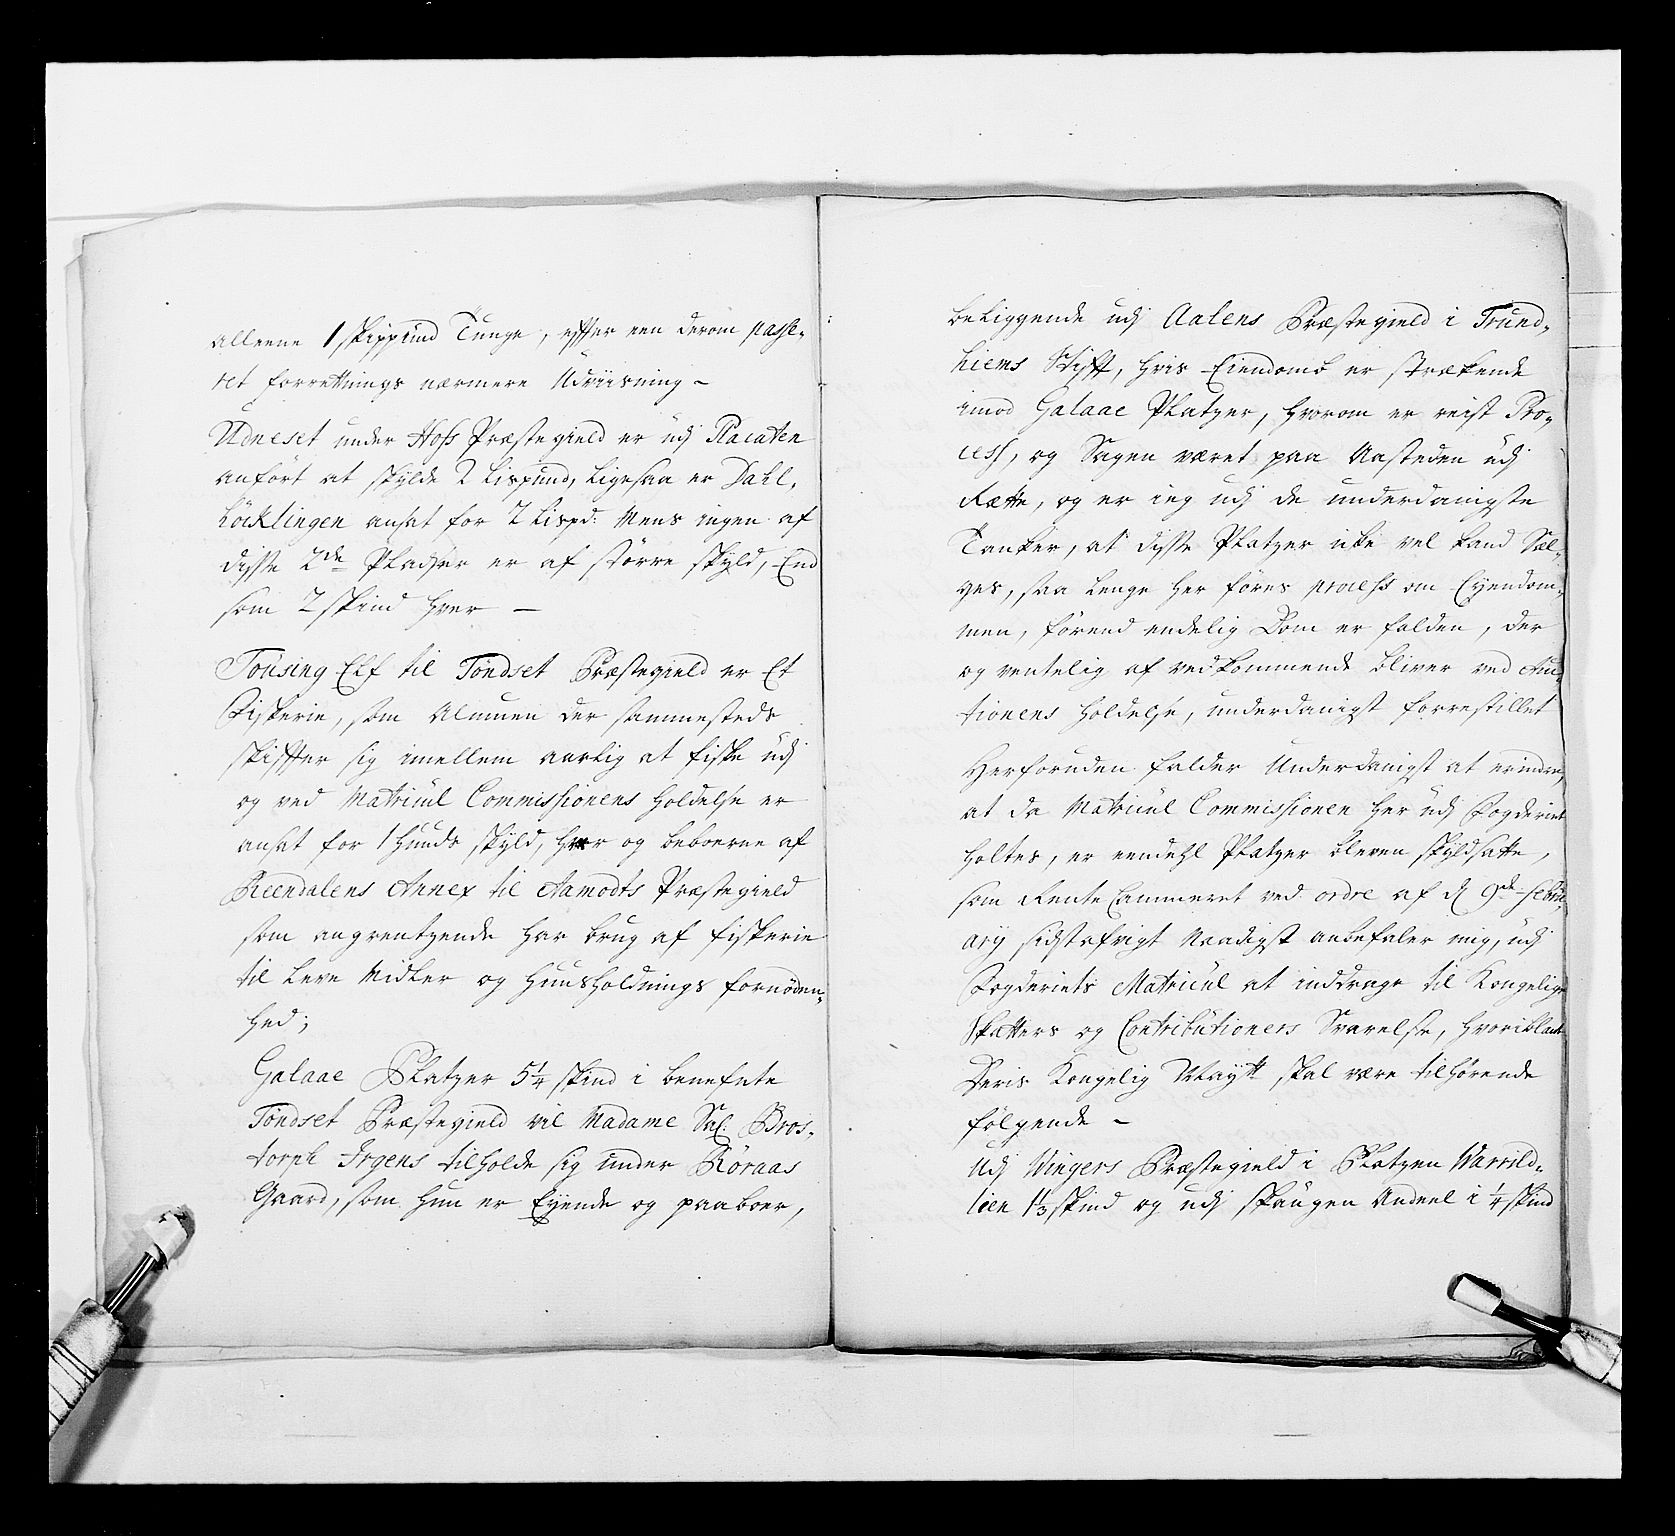 alleene 1 Skippund Tunge, efter een derom passe-
ret forretnings nærmere Udviisning -
Udneset under Hofs Præstegield er udj Placaten
anfört at skylde 2 Lispund, ligesaa er Dahl,
Löcklingen ansat for 2 Lispd: Mens ingen af
disse 2de Pladser er af större skyld, End
som 2 skind hver -
Tousing Elf til Töndset Præstegield er Et
Fiskerie, som Almuen der sammesteds
skiffter sig imellem aarlig at fiske udj
og ved Matricul Commissionens Holdelse er
ansat for 1 Huuds skyld, hvor og beboerne af
Reendalens Annex til Aamodts Præstegield
som angrentzende har brug af fiskerie
til Leve Midler og Huusholdnings fornöden-
hed;
Galaae Platzer 5 1/4 skind i benefnte
Töndset Præstegield vil Madame Sal. Bros-
torph Irgens tilholde sig under Röraas
Gaard, som hun er Eyende og paaboer,
beliggende udj Aalens Præstegield i Trund-
hiems Stifft, hvis Eiendomb er strækende
imod Galaae Platzer, hvorom er reist Pro-
cess, og Sagen været paa Aasteden udj
Rætte, og er ieg udj de underdanigste
Tanker, at disse Platzer icke vel kand Sæl-
ges, saa lenge her föres process om Eyendom-
men, förend endelig Dom er falden, der
og ventelig af vedkommende bliver ved Auc-
tionens Holdelse, underdanigst forrestillet
Herforuden falder Underdanigst at erindre,
at da Matricul Commissionen her udj Fogderiet
holtes, er eendehl Platzer bleven skyldsatte,
som Rente Cammeret ved ordre af d 9de Febru-
arij sidstafvigt Naadigst anbefaler mig, udj
Fogderiets Matricul at inddrage til Kongelige
Skatters og Contributioners Svarelse, hvoriblant
Deris Kongelig Maytt skal være tilhørende
følgende -
Udj Vingers Præstegield i Platzen Varild-
lien 1 1/3 skind og udj Skaugen Andeel i 1/4 skind